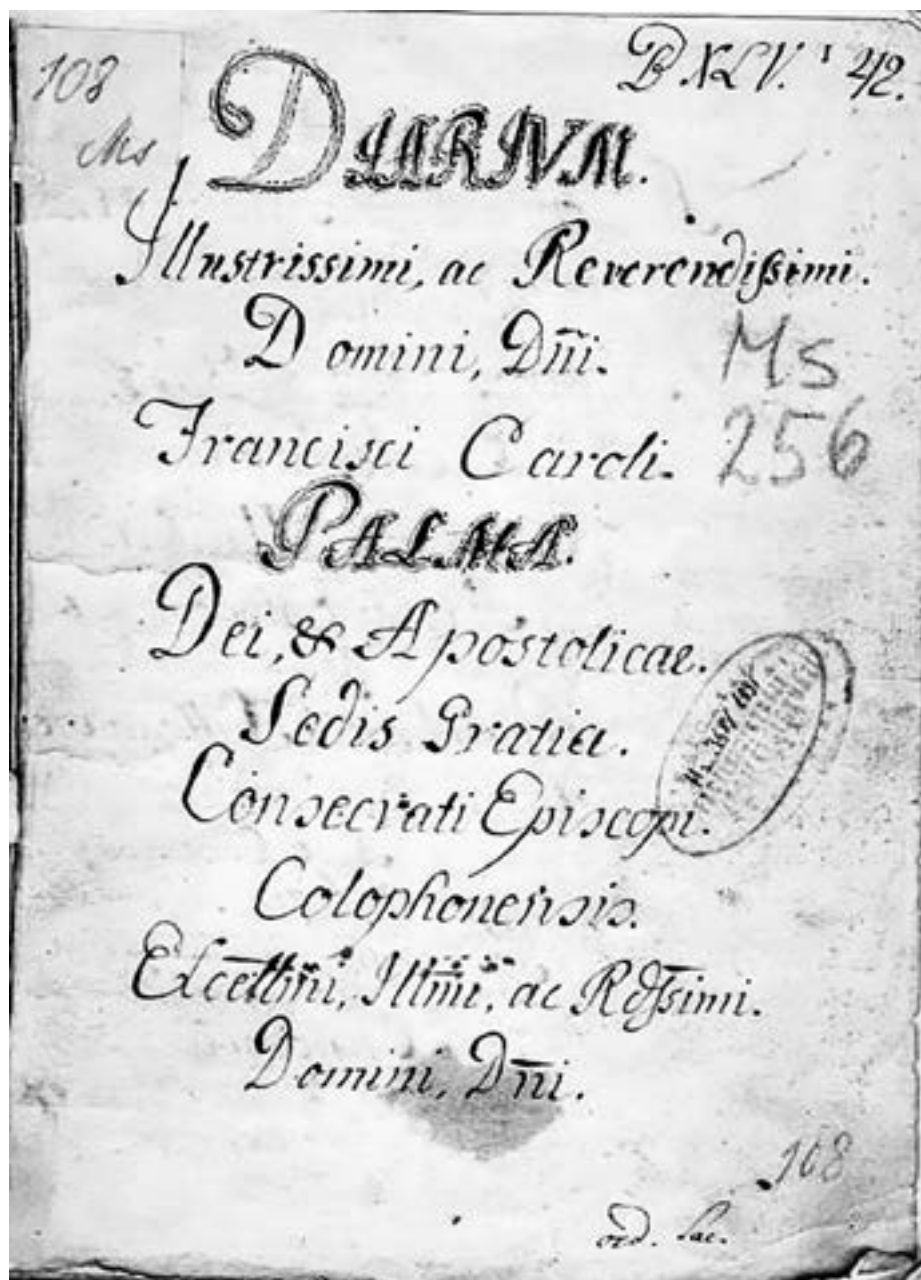 108
Ms
B XLV. 42.
DIARIVM.
Illustrissimi, ac Reverendissimi.
Domini, Dn̄i.
Francisci Caroli.
Ms
256
PALMA.
Dei, & Apostolicae.
Sedis Gratia.
Consecrati Episcopi.
Colophonensis.
Excell̄mi, Ill̄mi, ac Rdss̄imi.
Domini, Dn̄i.
108
ord. Sac.